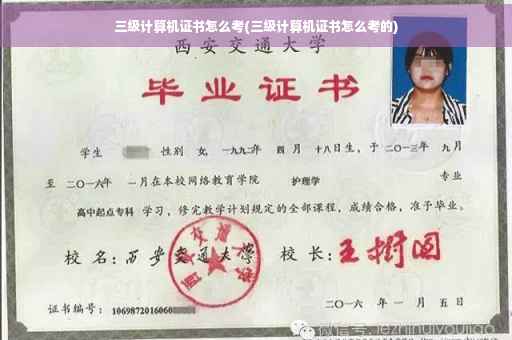 三级计算机证书怎么考(三级计算机证书怎么考的)
西安交通大学
毕业证书
学生 性别 女, 一九九二年 四月 十八日生, 于二〇一三年 九月
至 二〇一六年 一月在本校网络教育学院 护理学 专业
高中起点专科 学习, 修完教学计划规定的全部课程, 成绩合格, 准予毕业。
校 名: 西安交通大学 校 长: 王树国
西安交通大学
证书编号: 1069872016060
二〇一六 年 一 月 五 日
微信号: jiezhinuiyoujiao